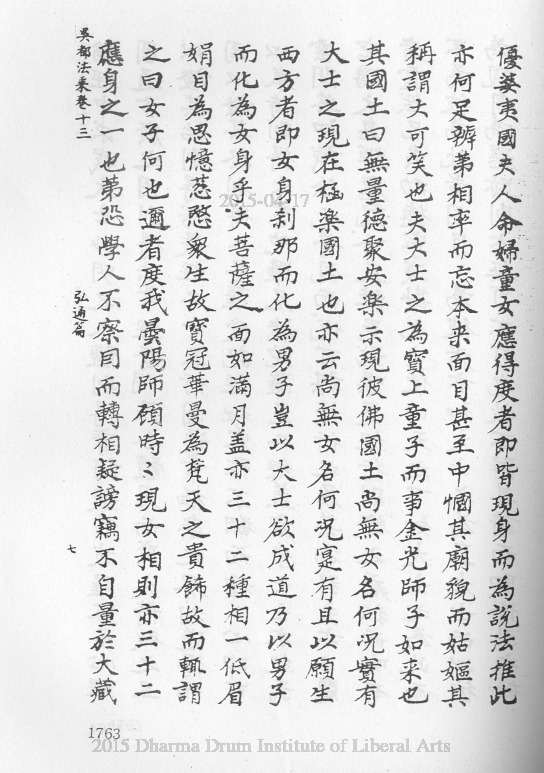 優婆夷國夫人命婦童女應得度者即皆現身而為說法推此
亦何足辨第相率而忘本来面目甚至中幗其廟貌而姑嫗其
稱謂大可笑也夫大士之為寶上童子而事金光師子如来也
其國土曰無量德聚安楽示現彼佛國土尚無女名何況實有
大士之現在極楽國土也亦云尚無女名何况寔有且以願生
西方者即女身刹那而化為男子豈以大士欲成道乃以男子
而化為女身乎夫菩薩之面如滿月盖亦三十二種相一低眉
娟目為思憶慈愍衆生故寶冠華曼為梵天之貴飾故而輙謂
之曰女子何也邇者度我曇陽師頎時〻現女相則亦三十二
應身之一也苐恐學人不察目而轉相疑謗竊不自量於大藏
吳都法乗卷十三
弘通篇
七
1763
2015-04-17
2015 Dharma Drum Institute of Liberal Arts